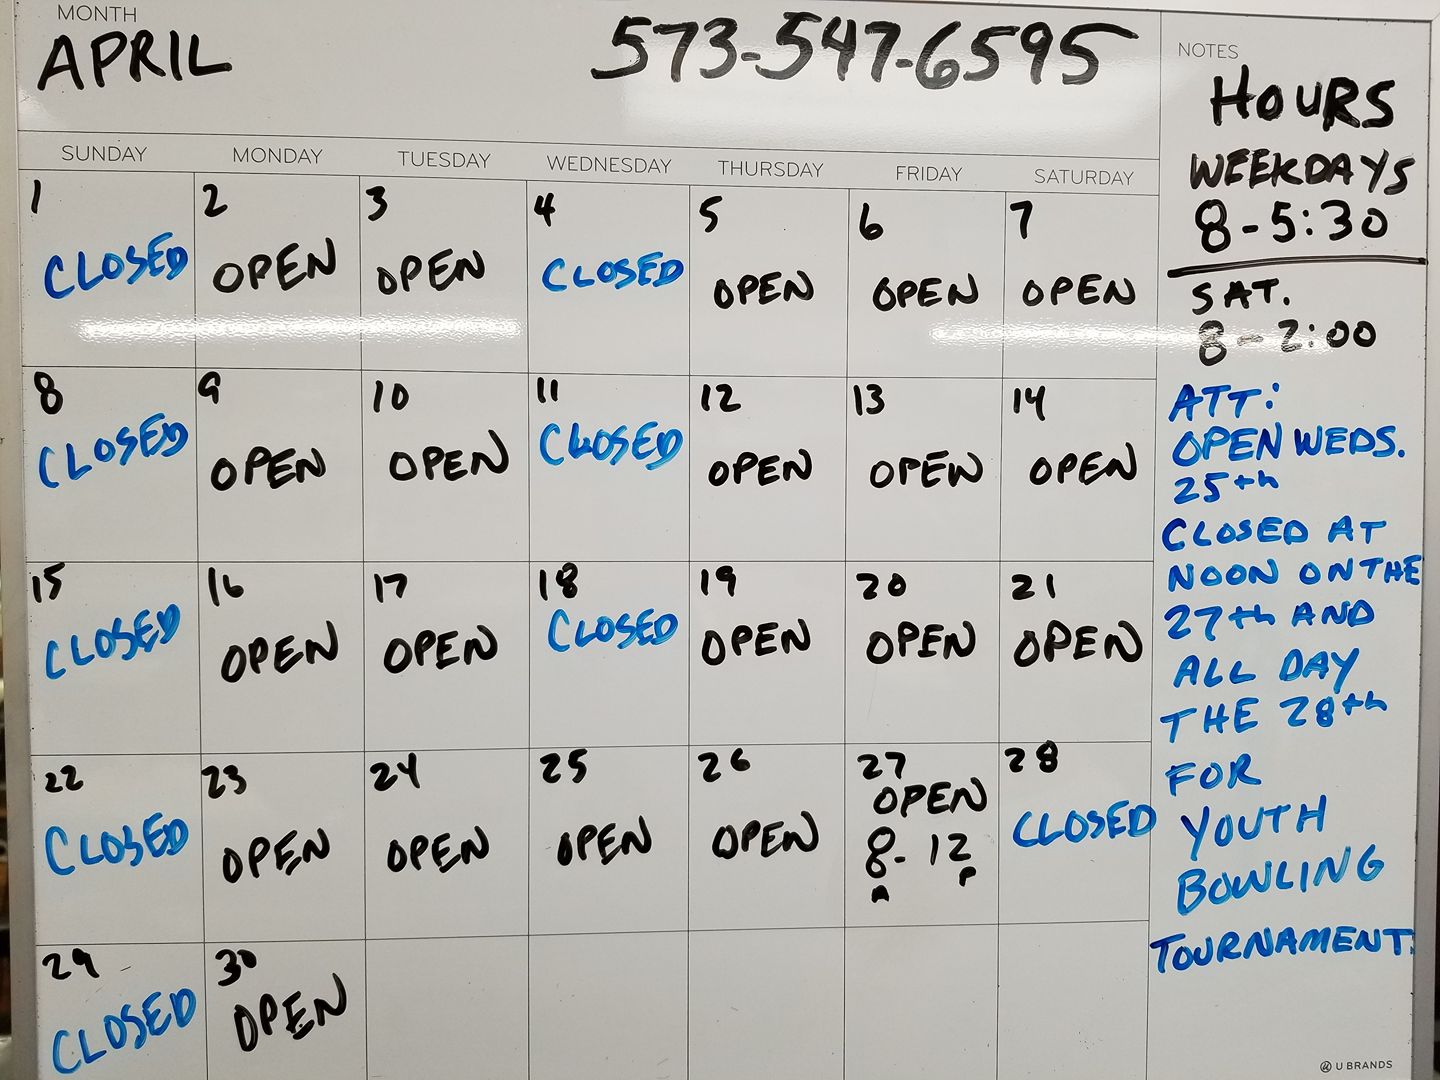 MONTH
APRIL
573-547-6595
SUNDAY MONDAY TUESDAY WEDNESDAY THURSDAY FRIDAY SATURDAY
1 2 3 4 5 6 7
CLOSED OPEN OPEN CLOSED OPEN OPEN OPEN
8 9 10 11 12 13 14
CLOSED OPEN OPEN CLOSED OPEN OPEN OPEN
15 16 17 18 19 20 21
CLOSED OPEN OPEN CLOSED OPEN OPEN OPEN
22 23 24 25 26 27 28
CLOSED OPEN OPEN OPEN OPEN OPEN CLOSED
8- 12
A P
29 30
CLOSED OPEN
NOTES
HOURS
WEEKDAYS
8-5:30
SAT.
8-2:00
ATT:
OPEN WEDS.
25th
CLOSED AT
NOON ON THE
27th AND
ALL DAY
THE 28th
FOR
YOUTH
BOWLING
TOURNAMENT.
U BRANDS